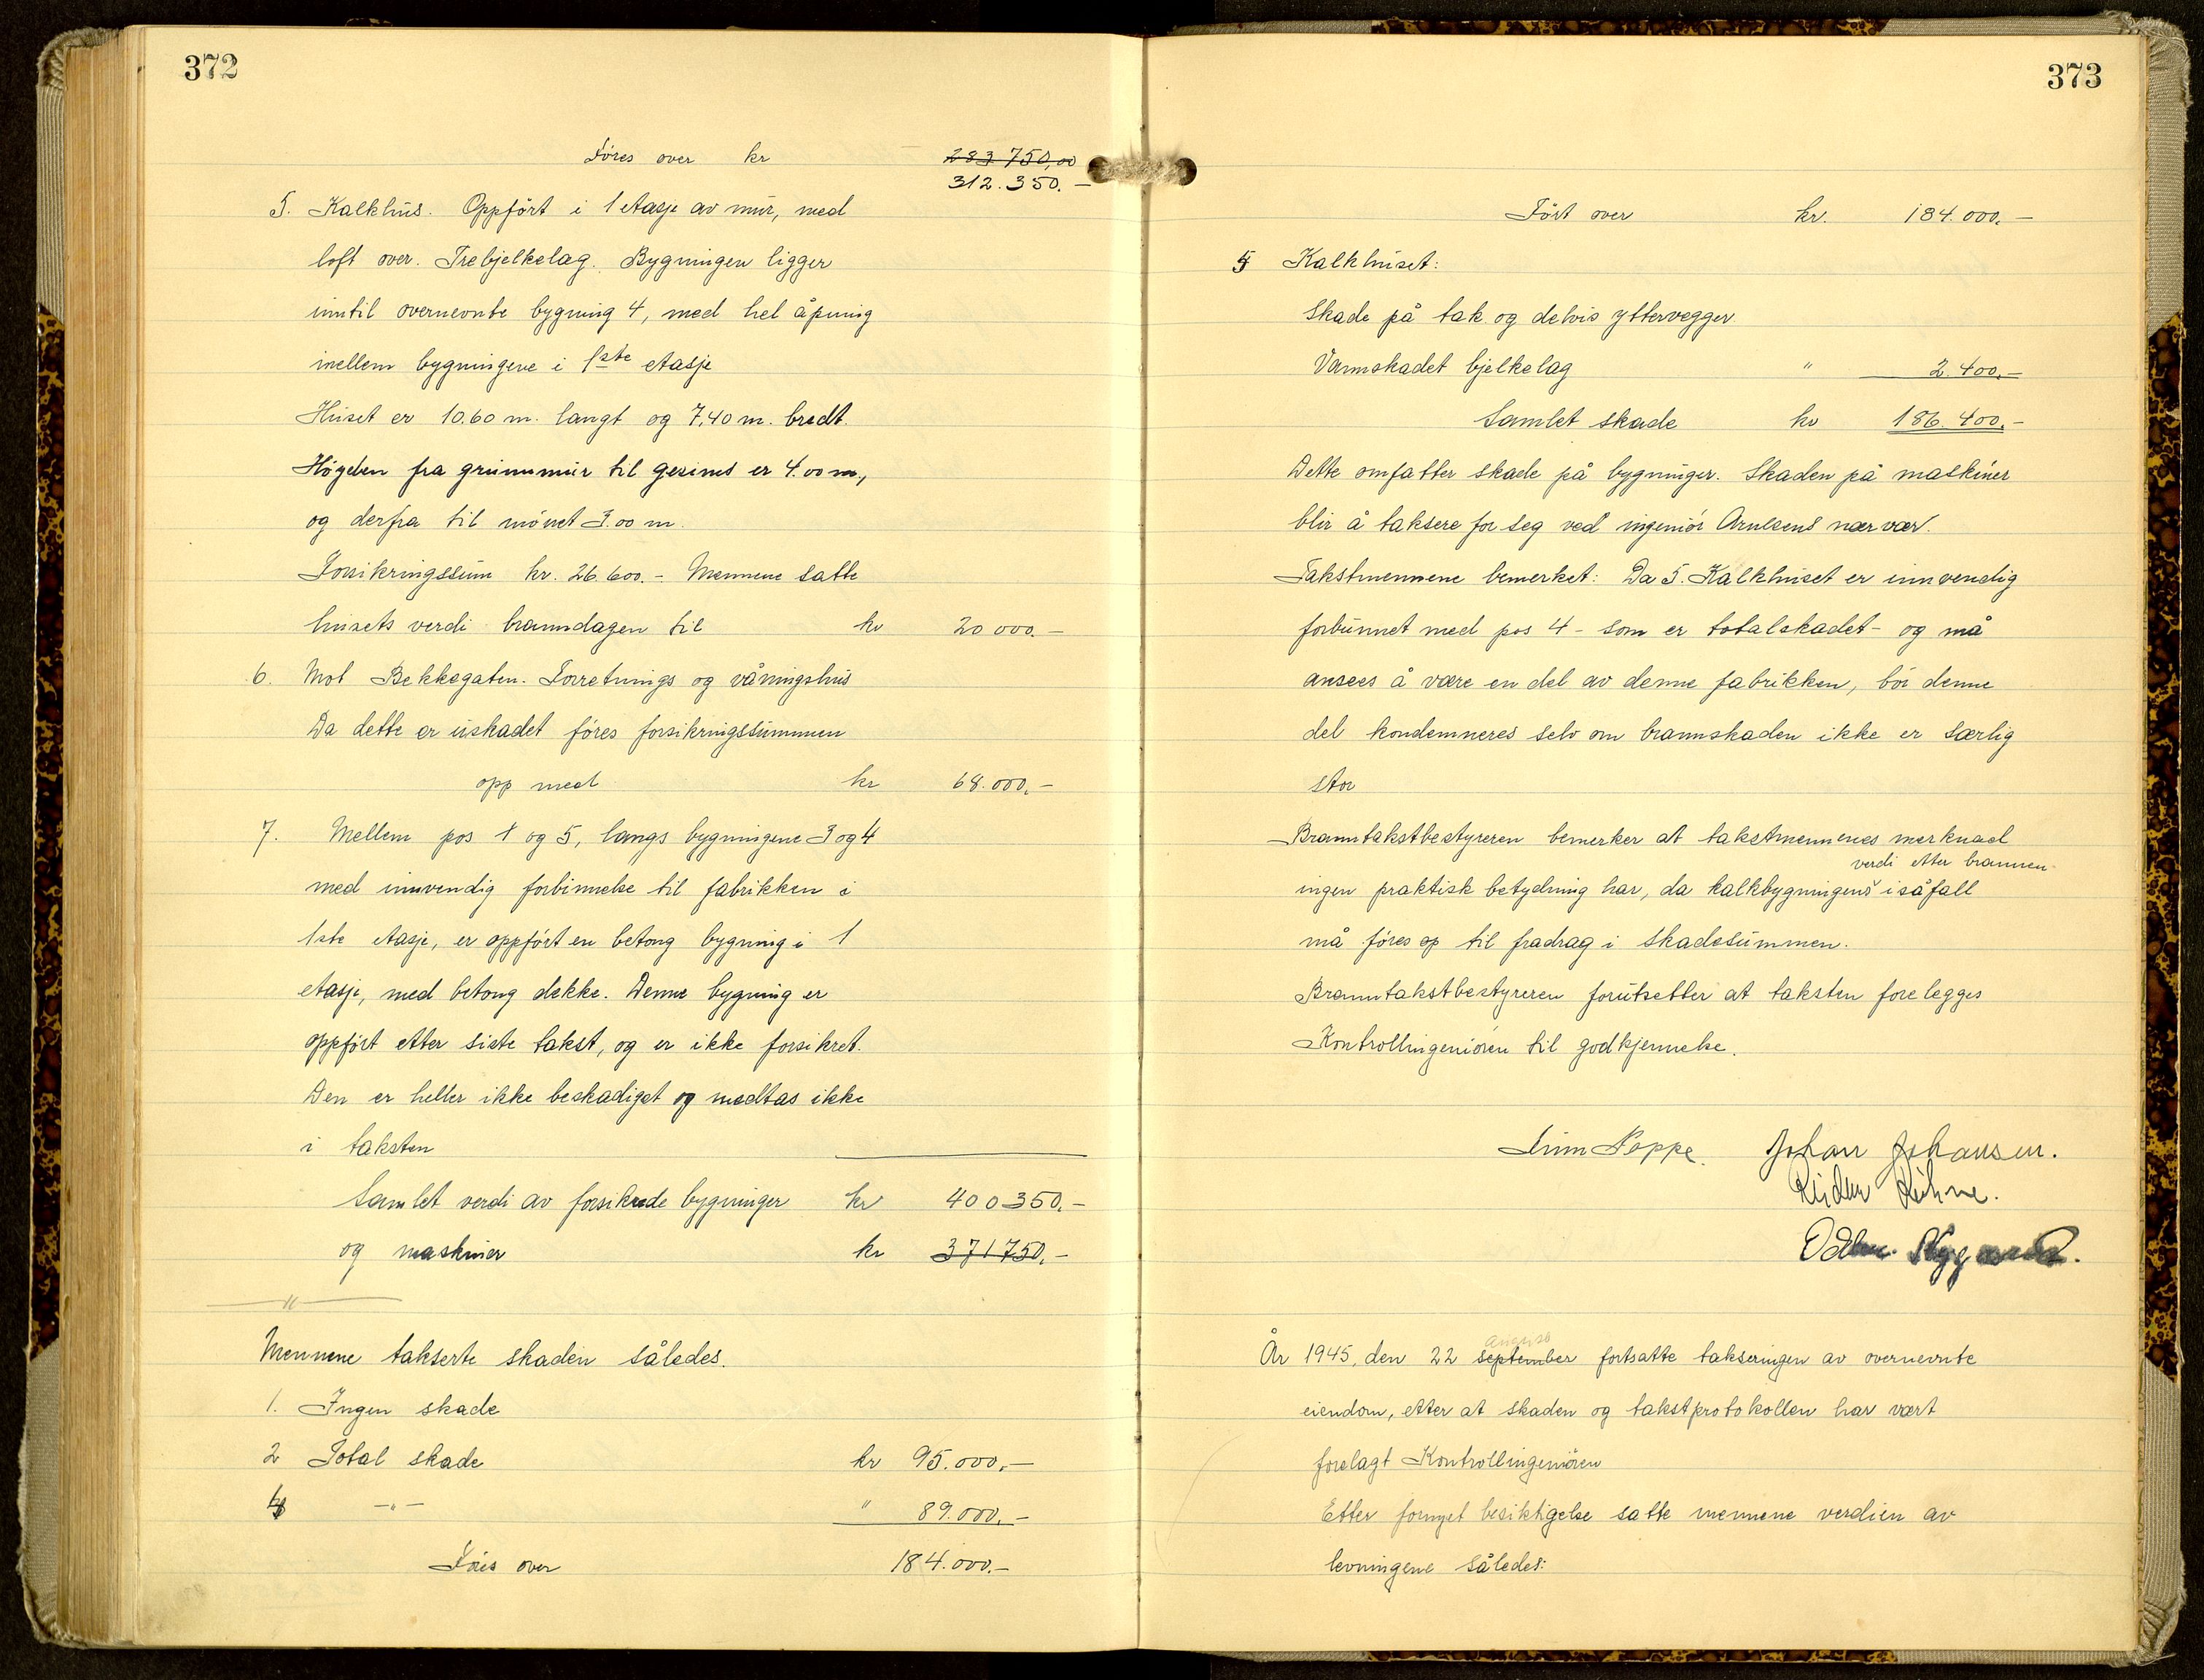 372
Föres over kr 283 750,00
312.350.-
5. Kalkhus. Oppfört i 1 etasje av mur, med
loft over. Trebjelkelag. Bygningen ligger
inntil overnevnte bygning 4, med hel åpning
mellem bygningene i 1ste etasje
Huset er 10.60 m. langt og 7,40 m. bredt.
Högden fra grunnmur til gesims er 4.00 m,
og derfra til mönet 3.00 m.
Forsikringssum kr. 26.600.- Mennene satte
husets verdi branndagen til kr 20 000.-
6. Mot Bekkegaten. Forretnings og våningshus
Da dette er uskadet föres forsikringssummen
opp med kr 68.000,-
7. Mellem pos 1 og 5, langs bygningene 3 og 4
med innvendig forbinnelse til fabrikken i
1ste etasje, er oppfört en betong bygning i 1
etasje, med betong dekke. Denne bygning er
oppfört etter siste takst, og er ikke forsikret.
Den er heller ikke beskadiget og medtas ikke
i taksten
Samlet verdi av forsikrede bygninger kr 400350,-
og maskiner kr 371750,-
"
Mennene takserte skaden således.
1. Ingen skade
2 Total skade kr 95.000,-
4 -"- " 89.000,-
Föres over 184.000.-
373
Fört over kr. 184.000,-
5 Kalkhuset:
Skade på tak og delvis yttervegger
Vannskadet bjelkelag " 2.400,-
Samlet skade kr 186.400,-
Dette omfatter skade på bygninger. Skaden på maskiner
blir å taksere for seg ved ingeniör Arnesens nærvær.
Takstmennene bemerket: Da 5. Kalkhuset er innvendig
forbunnet med pos 4 - som er totalskadet - og må
ansees å være en del av denne fabrikken, bör denne
del kondemneres selv om brannskaden ikke er særlig
stor
Branntakstbestyreren bemerker at takstmennenes merknad
verdi etter brannen
ingen praktisk betydning har, da kalkbygningens i såfall
må föres op til fradrag i skadesummen.
Branntakstbestyreren forutsetter at taksten forelegges
Kontrollingeniören til godkjennelse.
Finn Poppe. Johan Johansen.
Reidar Kühne.
Nygaard.
August
År 1945, den 22 september fortsatte takseringen av overnevnte
eiendom, etter at skaden og takstprotokollen har vært
forelagt Kontrollingeniören
Etter fornyet besiktigelse satte mennene verdien av
levningene således: